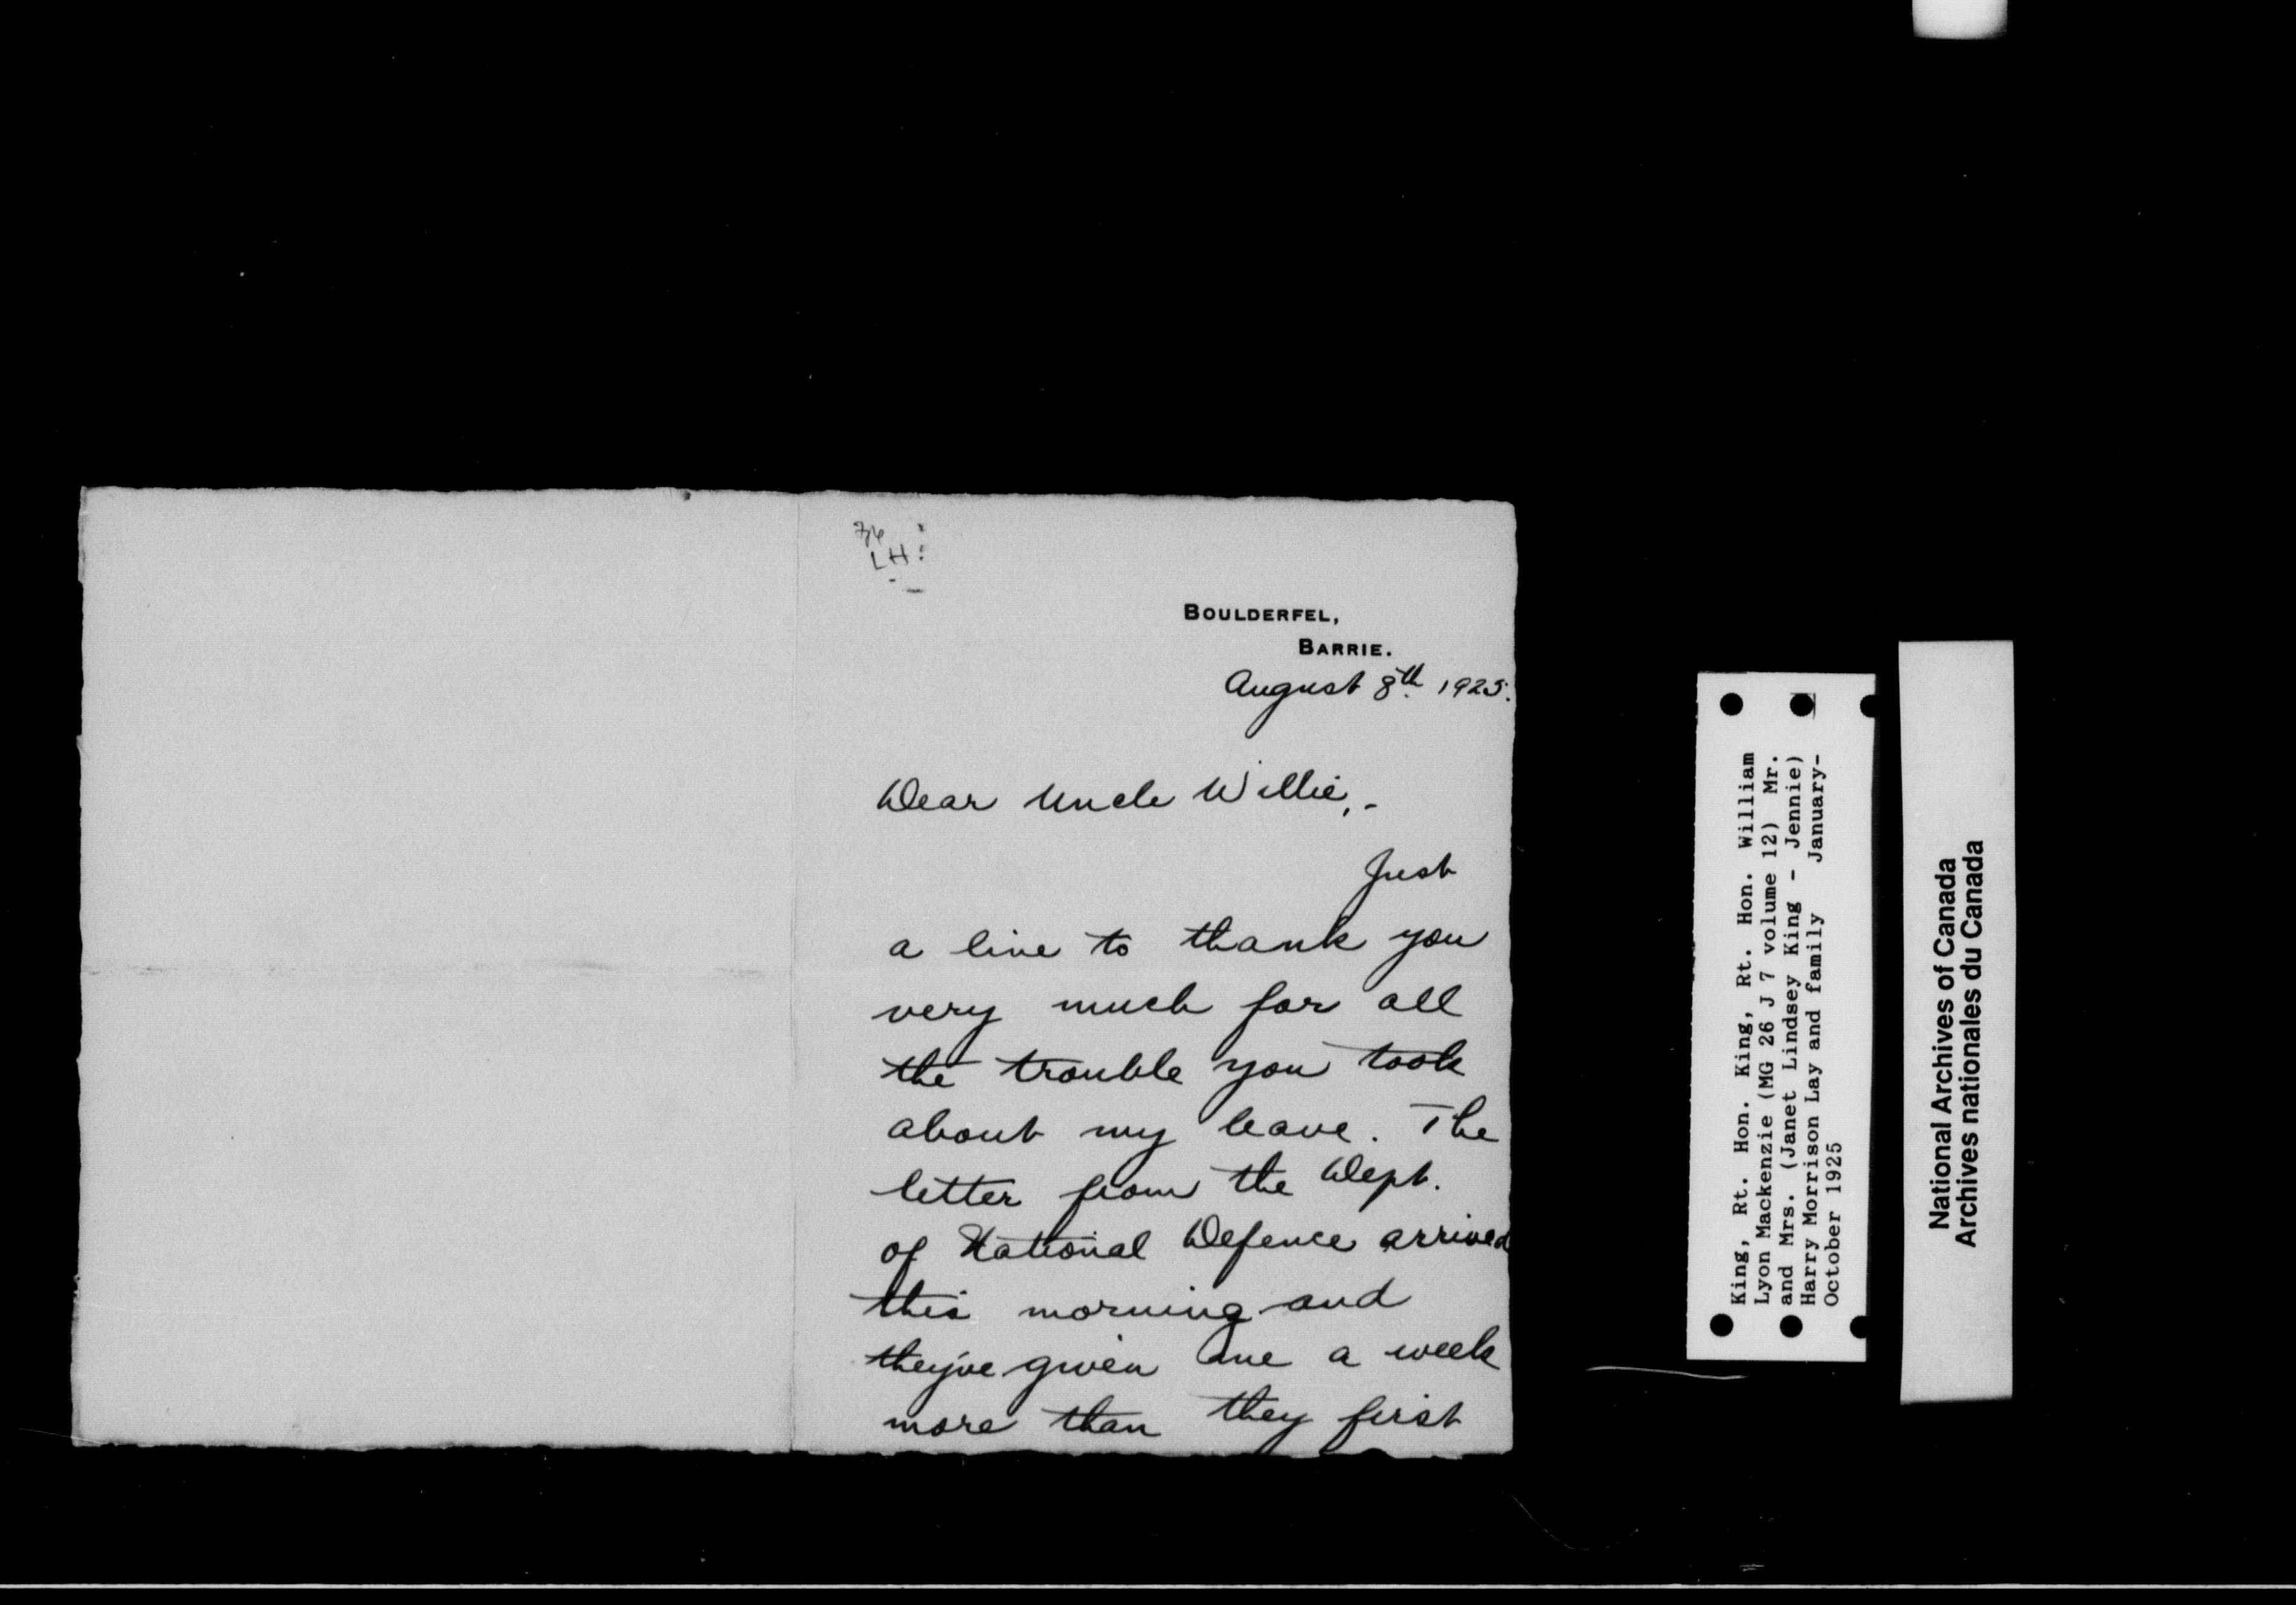 LH
BOULDERFEL,
BARRIE.
August 8th 1925.
Dear Uncle Willie,-
Just
a line to thank you
very much for all
the trouble you took
about my leave. The
letter from the Dept.
of National Defence arrived
this morning and
they've given me a week
more than they first
King, Rt. Hon. King, Rt. Hon. William
Lyon Mackenzie (MG 26 J 7 volume 12) Mr.
and Mrs. (Janet Lindsey King - Jennie)
Harry Morrison Lay and family January-
October 1925
National Archives of Canada
Archives nationales du Canada